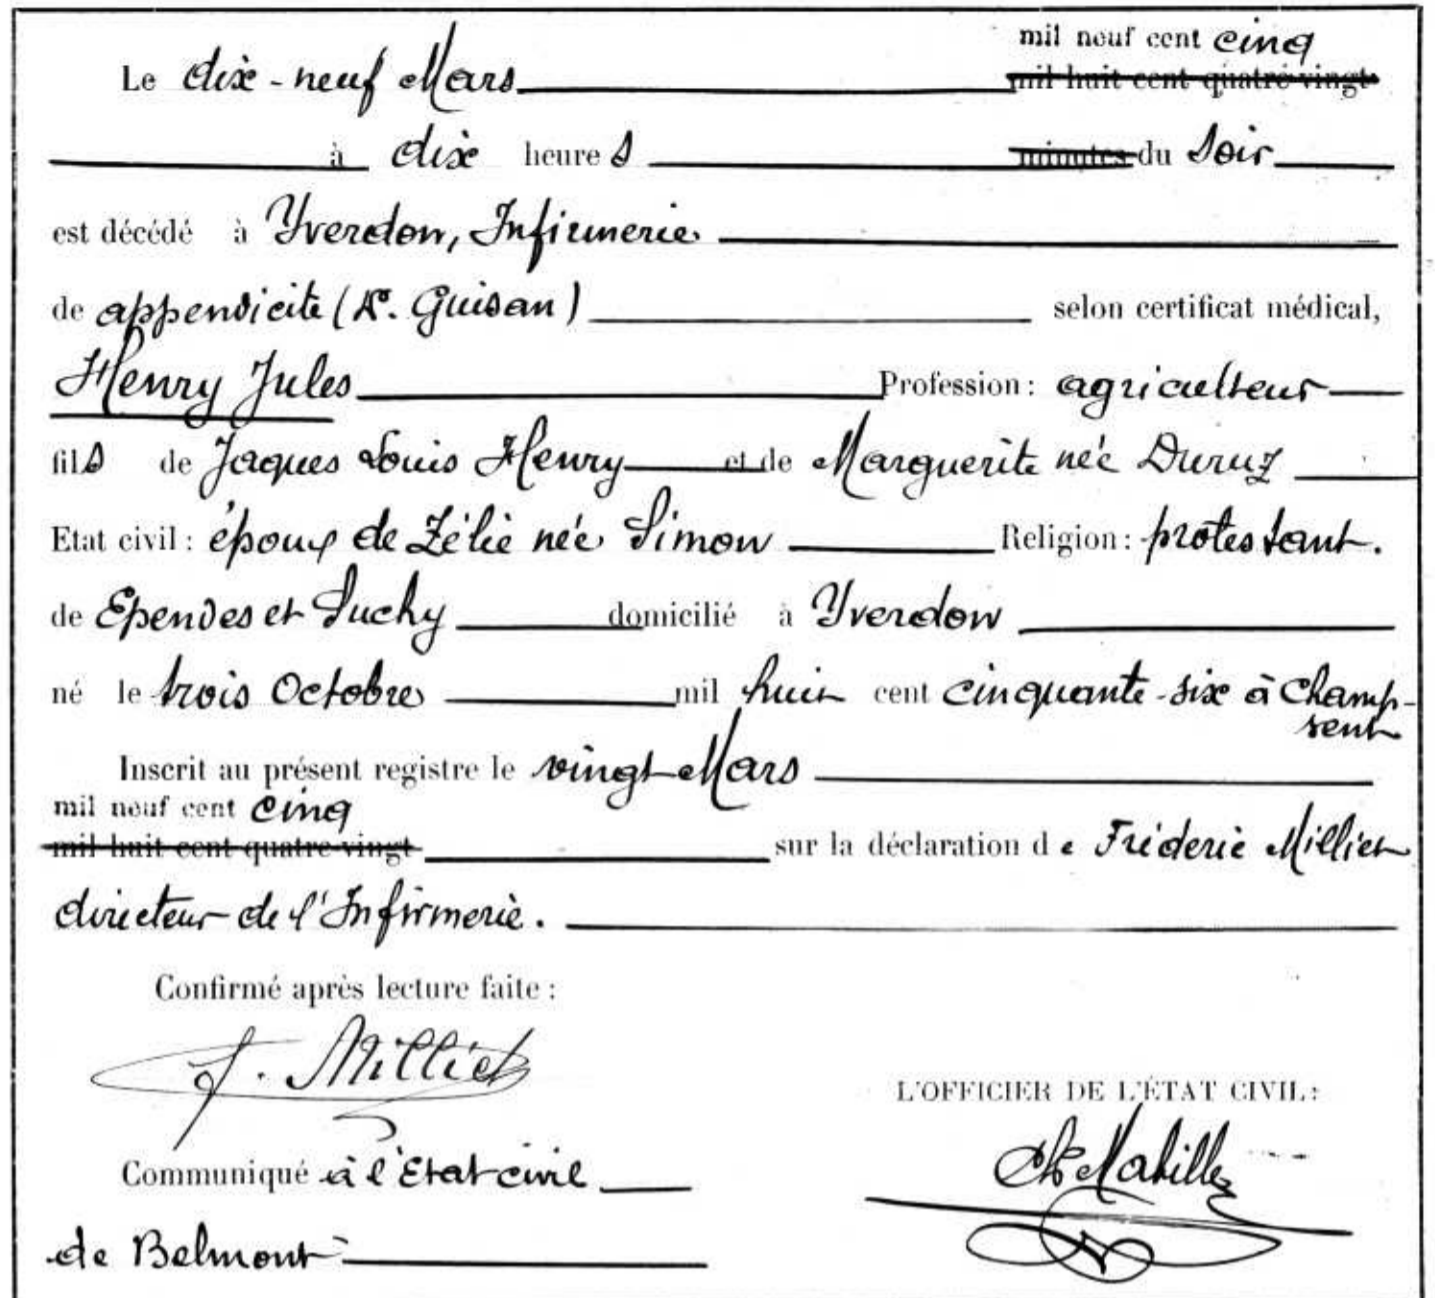 mil neuf cent cinq
Le dix-neuf Mars mil huit cent quatre-vingt
à dix heures minutes du soir
est décédé à Yverdon, Infirmerie
de appendicite (Dr. Guisan) selon certificat médical,
Henry Jules Profession : agriculteur
fils de Jaques Louis Henry et de Marguerite née Duruz
Etat civil : époux de Zélie née Simon Religion : protestant.
de Ependes et Suchy domicilié à Yverdon
né le trois Octobre mil huit cent cinquante-six à Champ-
vent
Inscrit au présent registre le vingt Mars
mil neuf cent cinq
mil huit cent quatre-vingt sur la déclaration de Fréderic Milliet
directeur de l'Infirmerie.
Confirmé après lecture faite :
F. Milliet
L'OFFICIER DE L'ÉTAT CIVIL :
Communiqué à l'Etat civil
de Belmont